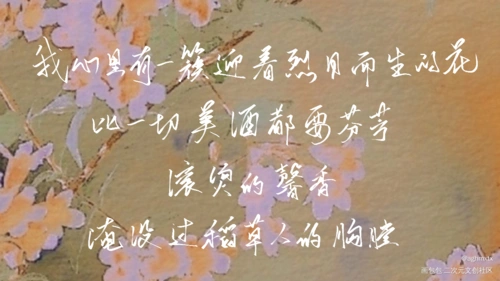 我心里有一簇迎着烈日而生的花
比一切美酒都要芬芳
滚烫的馨香
淹没过稻草人的胸膛
二次元文创社区